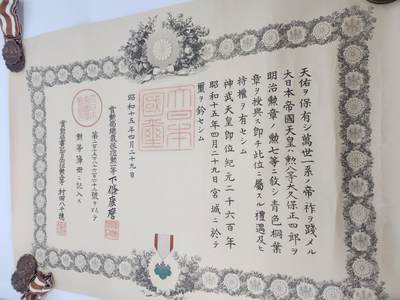 天佑ヲ保有シ萬世一系ノ帝祚ヲ踐メル
大日本帝國天皇ハ勲八等大久保正四郎ヲ
明治勲章ノ勲七等ニ敍シ青色桐葉
章ヲ授與ス即チ此位ニ屬スル禮遇及ヒ
特權ヲ有セシム
神武天皇即位紀元二千六百年
昭和十五年四月二十九日宮城ニ於テ
璽ヲ鈐セシム
大日本國璽
昭和十五年四月二十九日
賞勲局總裁從四位勲二等下條康麿
勲等簿册ニ記入ス
村田八千穂